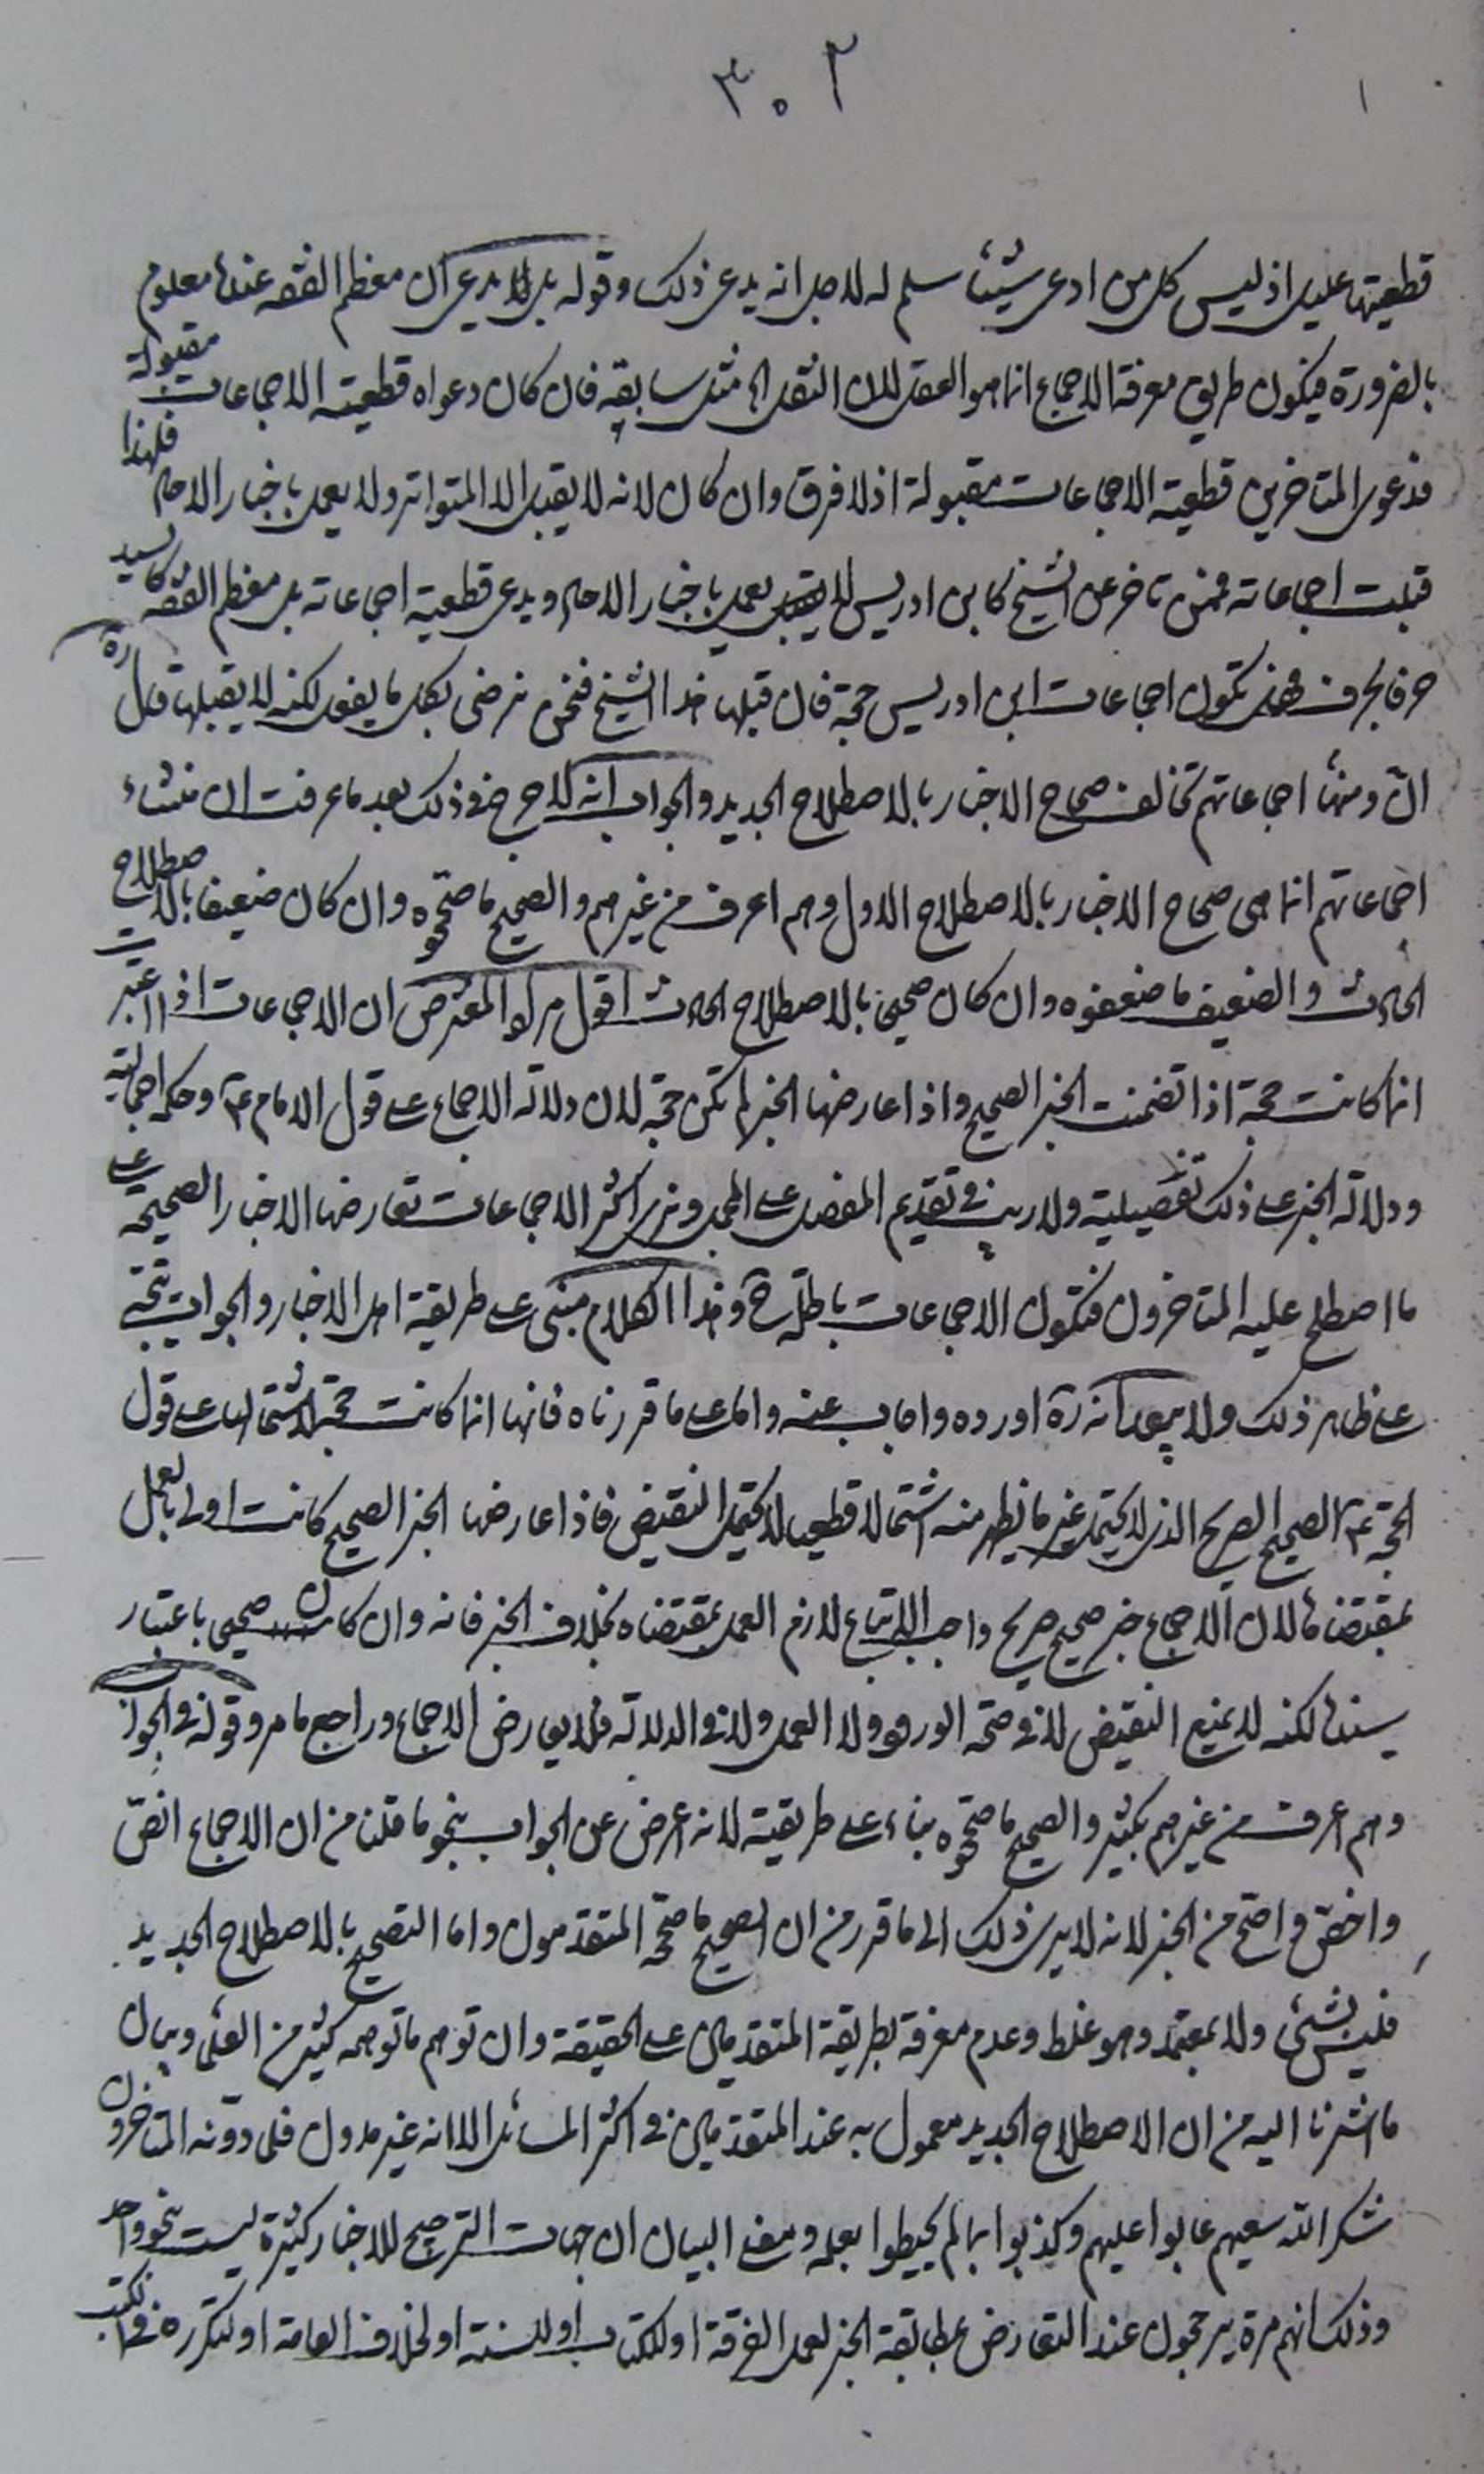 ٣٠٢
قطعيتها عليل اذ ليس كل من ادعى شيئا سلم له لاجل انه يدعى ذلك وقوله بل لا يدعى ان معظم الفقه عندنا معلوم
بالضرورة فيكون طريق معرفة الاجماع انما هو العقل لان النقل الخ مثل سابقه فان كان دعواه قطعية الاجماعات مقبولة
فدعوى المتاخرين قطعية الاجماعات مقبولة اذ لا فرق وان كان لانه لا يقبل الا المتواتر ولا يعمل باخبار الاحاد فلهذا
قبلت اجماعاته فممن تاخر عن الشيخ كابن ادريس لا يعمل باخبار الاحاد ويدعى قطعية اجماعاته بل معظم الفقه كالسيد
حرفا بحرف فحينئذ تكون اجماعات ابن ادريس حجة فان قبلها هذا الشيخ فنحن نرضى بكل ما يفعل لكنه لا يقبلها قال ره
الثا ومنها اجماعاتهم تخالف صحاح الاخبار بالاصطلاح الجديد والجواب انه لا حرج في ذلك بعد ما عرفت ان منشاء
اجماعاتهم انما هى صحاح الاخبار بالاصطلاح الاول وهم اعرف من غيرهم والصحيح ما صححوه وان كان ضعيفا بالاصطلاح
الحادث والضعيف ما ضعفوه وان كان صحيحا بالاصطلاح الحادث اقول مراد المعترض ان الاجماعات اذا اعتبرت
انما كانت حجة اذا تضمنت الخبر الصحيح واذا عارضها الخبر لم تكن حجة لان دلالة الاجماع على قول الامام ع وحكمه اجمالية
ودلالة الخبر على ذلك تفصيلية ولا ريب في تقديم المفصل على المجمل ونرى اكثر الاجماعات تعارضها الاخبار الصحيحة على
ما اصطلح عليه المتاخرون فتكون الاجماعات باطلة ح وهذا الكلام مبنى على طريقة اهل الاخبار والجواب يتجه
على ظاهر ذلك ولا يبعد انه ره اورده واجاب عنه واما على ما قررناه فانها انما كانت حجة لاشتمالها على قول
الحجة ع الصحيح الصريح الذى لا يحتمل غير ما يظهر منه اشتمالا قطعيا لا يحتمل النقيض فاذا عارضها الخبر الصحيح كانت اولى بالعمل
بمقتضاها لان الاجماع خبر صحيح صريح واجب الاتباع لازم العمل بمقتضاه بخلاف الخبر فانه وان كان صحيحا باعتبار
سندها لكنه لا يمنع النقيض لا في صحة الورود ولا العمل ولا في الدلالة فلا يعارض الاجماع وراجع ما مر وقوله في الجواب
وهم اعرف من غيرهم بكثير والصحيح ما صححوه بناء على طريقته لانه اعرض عن الجواب بنحو ما قلنا من ان الاجماع انصّ
واخصّ واصحّ من الخبر لانه لا يرى ذلك الى ما قرر من ان الصحيح ما صححه المتقدمون واما التصحيح بالاصطلاح الجديد
فليس بشئ ولا بمعتمد وهو غلط وعدم معرفة بطريقة المتقدمين على الحقيقة وان توهم ما توهمه كثير من العلما وبيان
ما اشرنا اليه من ان الاصطلاح الجديد معمول به عند المتقدمين في اكثر المسائل الا انه غير مدون فلما دوّنه المتاخرون
شكر الله سعيهم عابوا عليهم وكذبوا بما لم يحيطوا بعلمه ومعنى البيان ان جهات الترجيح للاخبار كثيرة ليست بنحو واحد
وذلك انهم مرة يرجحون عند التعارض بمطابقة الخبر لعمل الفرقة او للكتاب او للسنة او لخلاف العامة او لتكرره في الكتب